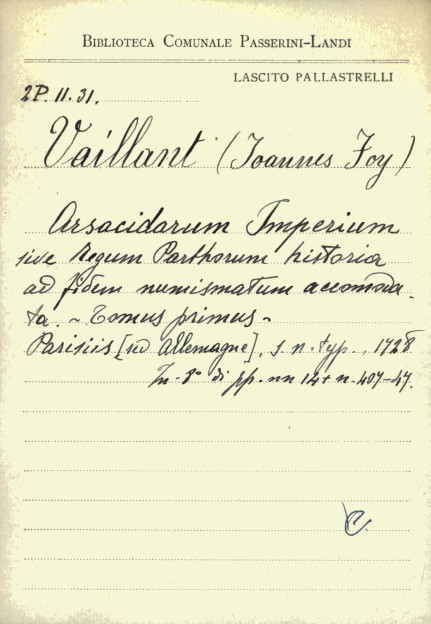 BIBLIOTECA COMUNALE PASSERINI-LANDI
LASCITO PALLASTRELLI
2P. II. 31.
Vaillant (Joannes Foy)
Arsacidarum Imperium
sive Regum Parthorum historia
ad fidem numismatum accomoda-
ta. - Tomus primus -
Parisiis [sed Allemagne], s. n. typ., 1728
In-8° di pp. nn 14 + n. 407-47.